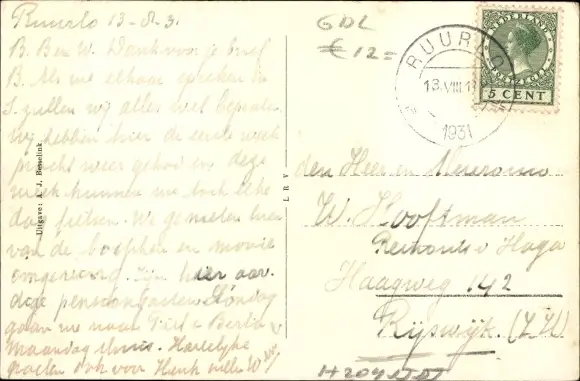 Ruurlo 13-8-31
B. B en W. Dank voor je brief
B. Als we elkaar spreken in
S. zullen wij alles wel bepraten
Wij hebben hier de eerste week
pracht weer gehad en deze
week kunnen we toch elke
dag fietsen. We genieten hier
van de bosschen en mooie
omgeving. hier aar.
dige pensiongasten Zondag
gaan we naar en
Maandag thuis. Hartelijke
groeten ook voor Henk
Uitgave: A. J. Besselink.
LRY
GDL
€ 12=
RUURLO
13.VIII
1931
NEDERLAND
5 CENT
den Heer en Mevrouw
W. Hooftman
Haga
Haagweg 142
Rijswijk. (Z.H)